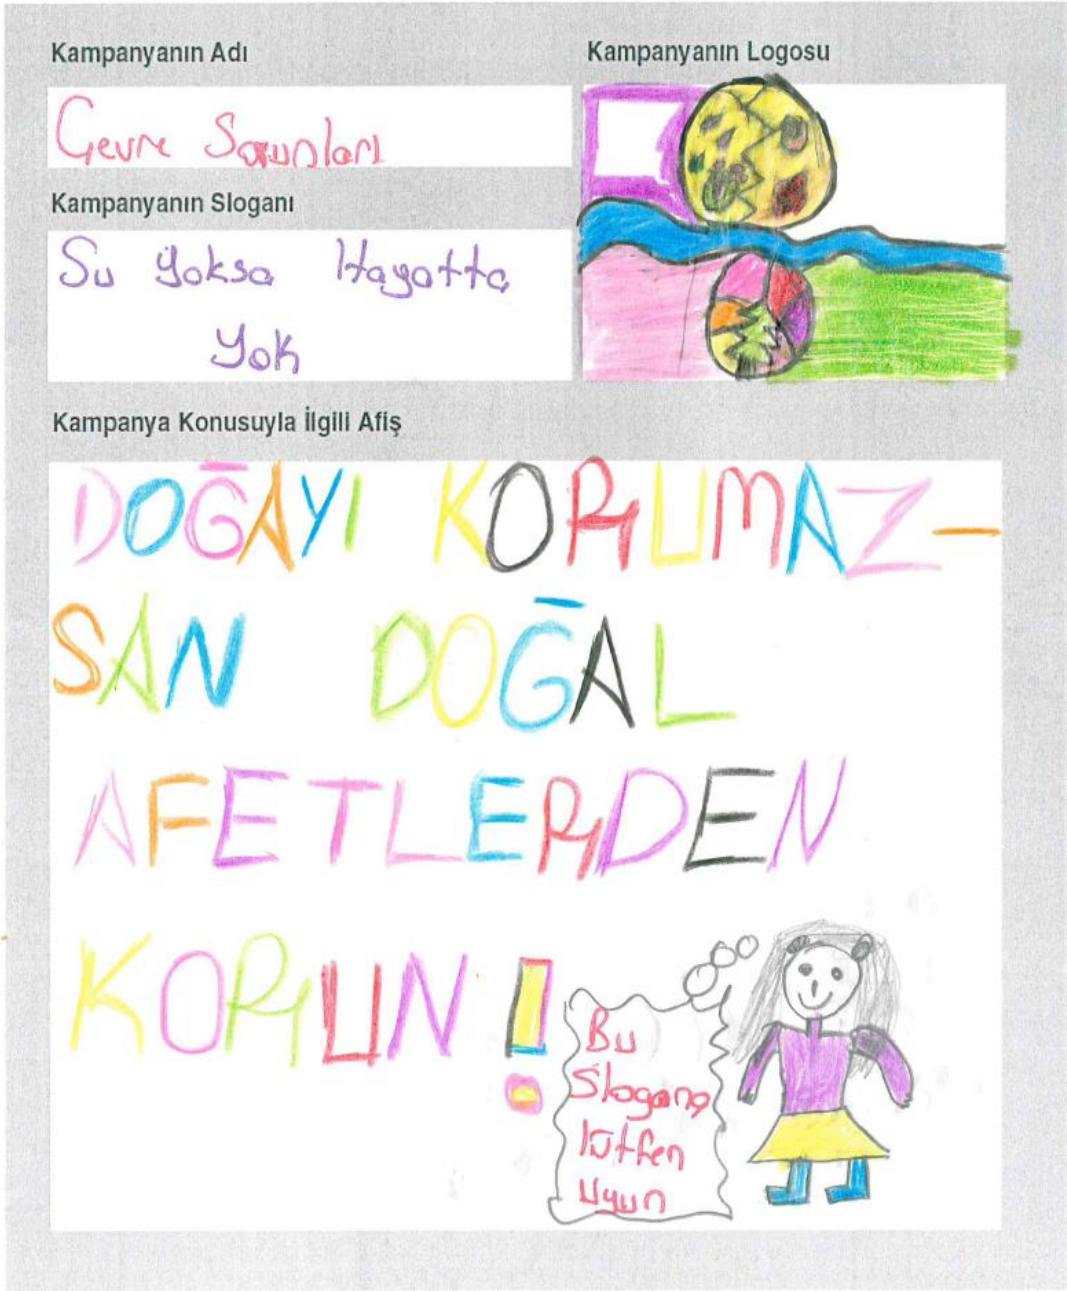 Kampanyanın Adı
Çevre Sorunları
Kampanyanın Sloganı
Su Yoksa Hayatta
Yok
Kampanyanın Logosu
Kampanya Konusuyla İlgili Afiş
DOĞAYI KORUMAZ-
SAN DOĞAL
AFETLERDEN
KORUN!
Bu
Slogana
lütfen
uyun